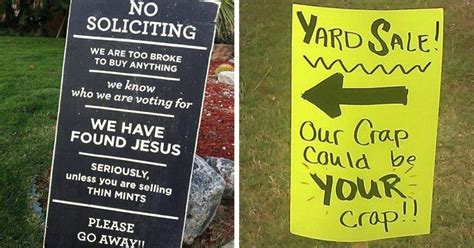 NO
SOLICITING
WE ARE TOO BROKE
TO BUY ANYTHING
we know
who we are voting for
WE HAVE
FOUND JESUS
SERIOUSLY,
unless you are selling
THIN MINTS
PLEASE
GO AWAY!!
YARD SALE!
OUR CRAP
COULD be
YOUR
CRAP!!